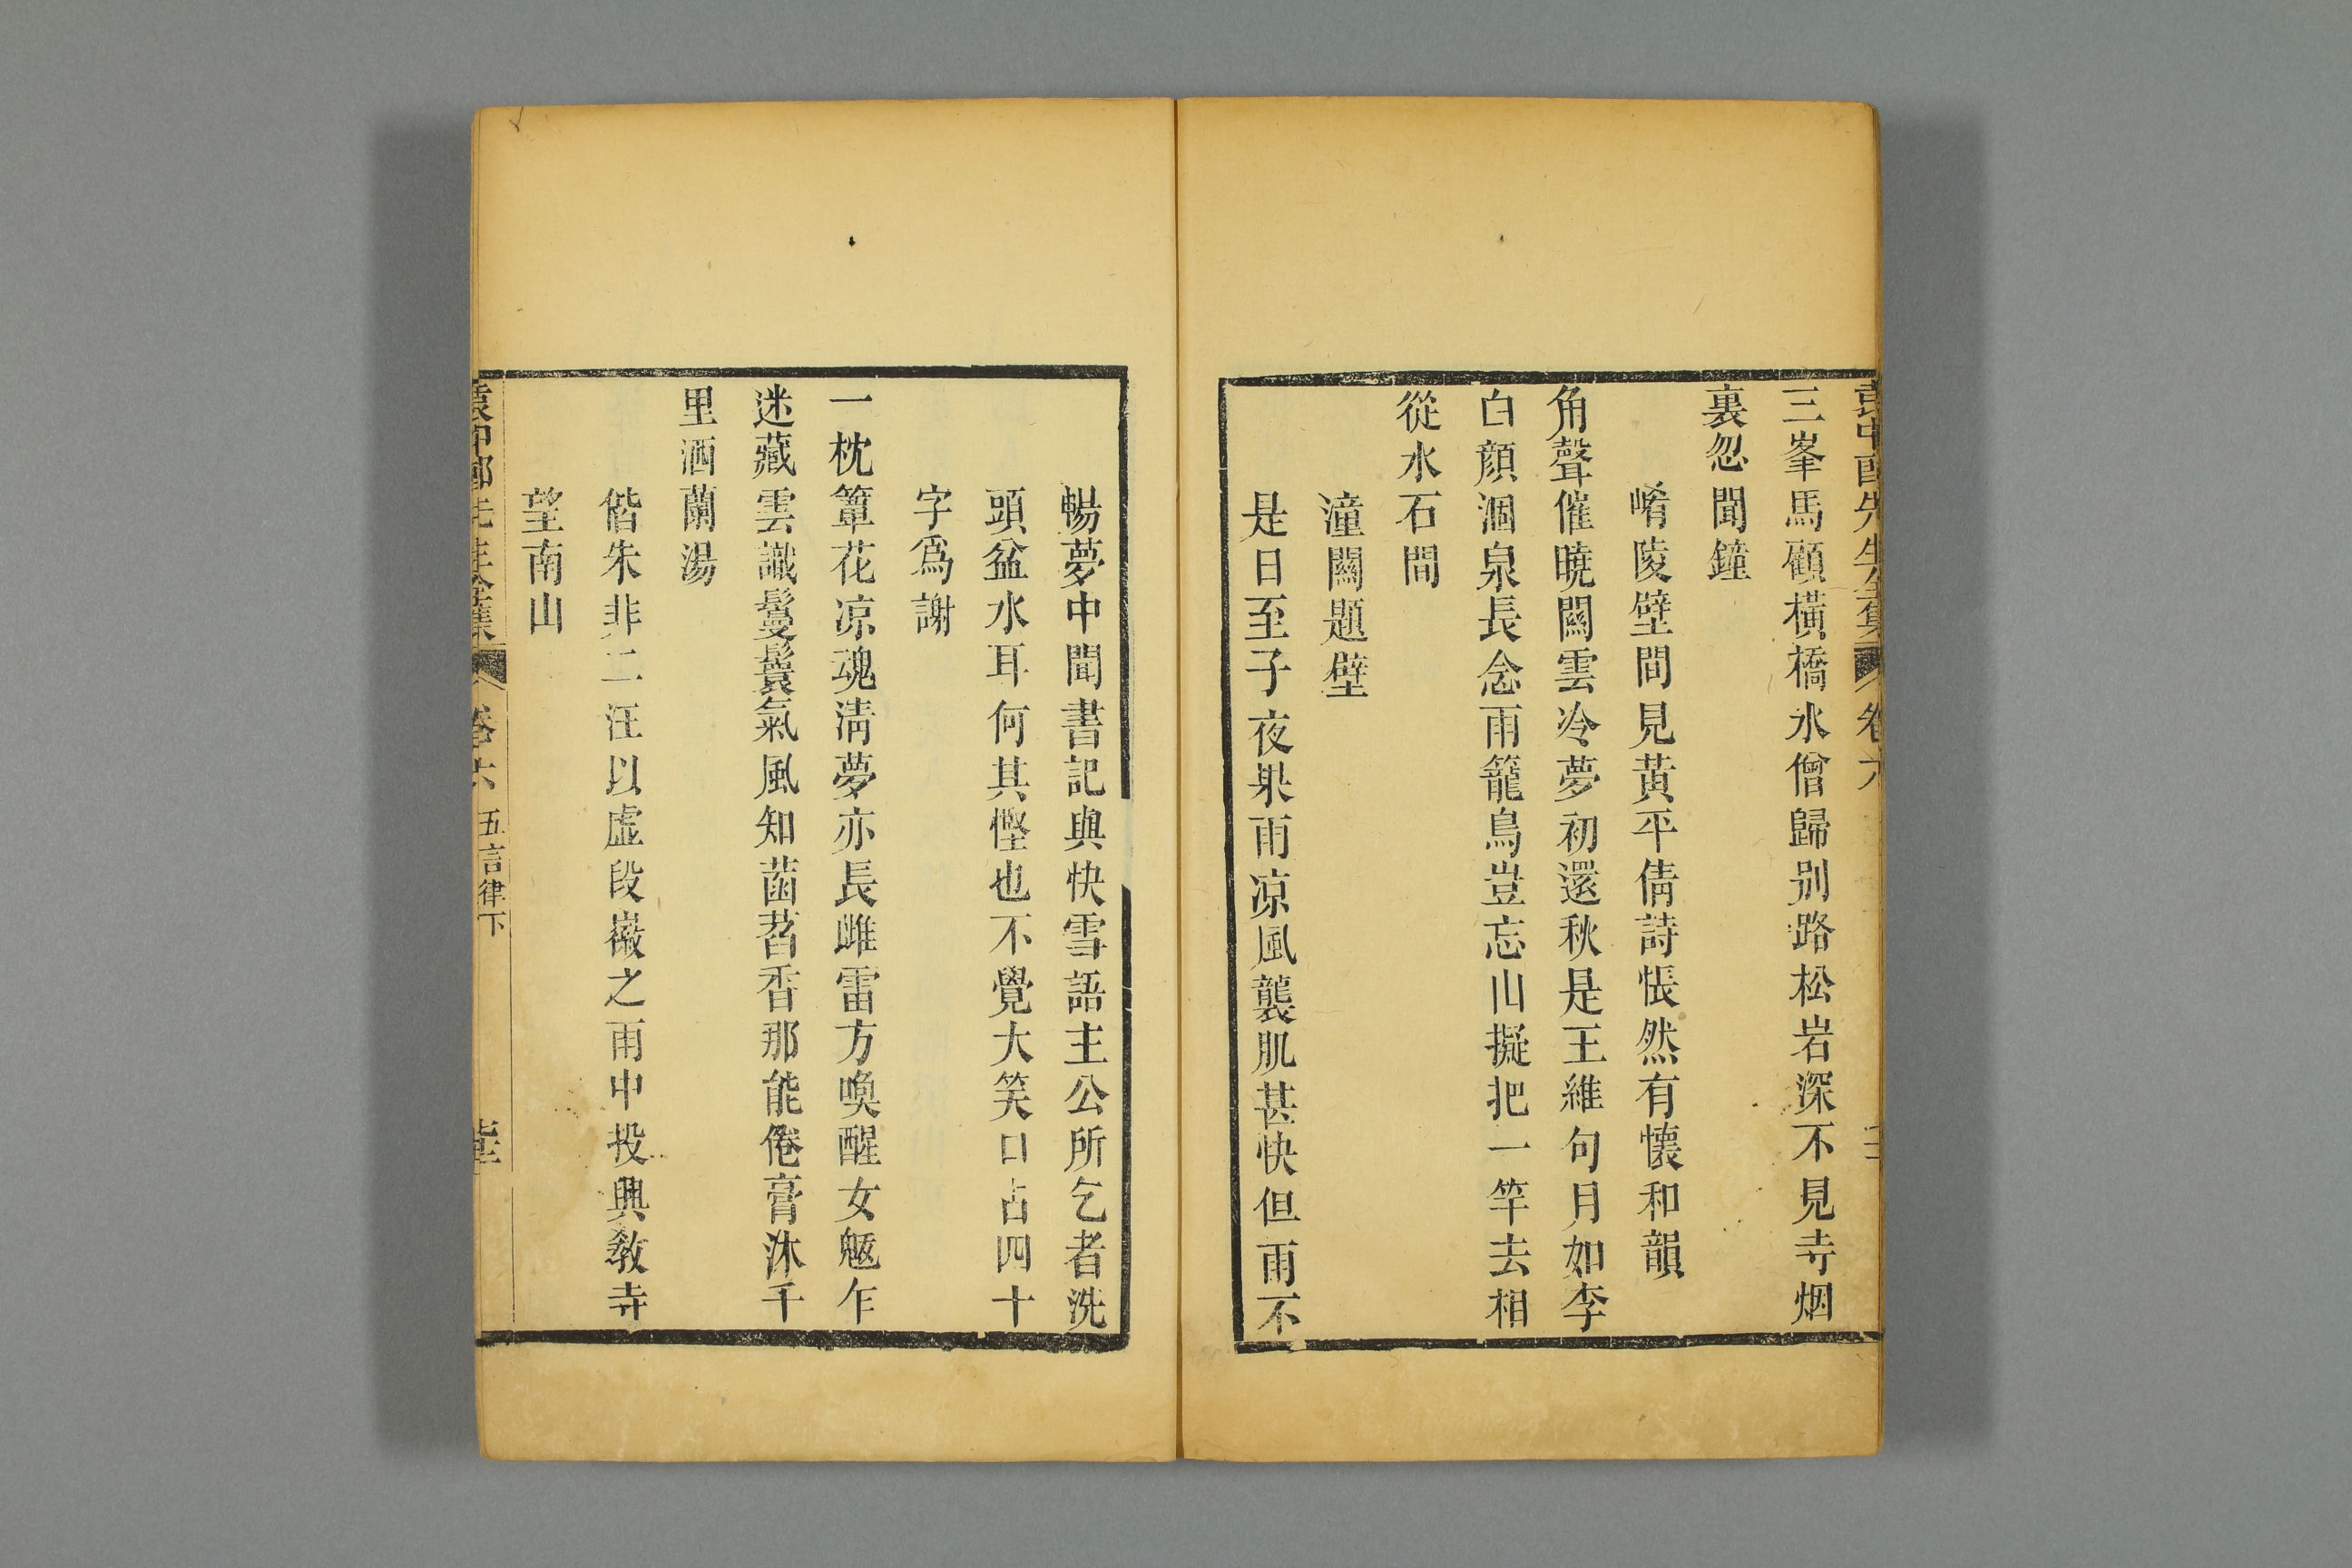 袁中郎先生全集 卷六
三峯馬顧橫橋水僧歸别路松岩深不見寺烟
裏忽聞鐘
崤陵壁間見黄平倩詩悵然有懷和韻
角聲催曉關雲冷夢初還秋是王維句月如李
白顔涸泉長念雨籠鳥豈忘山擬把一竿去相
從水石間
潼關題壁
是日至子夜果雨凉風襲肌甚快但雨不
暢夢中聞書記與快雪語主公所乞者洗
頭盆水耳何其慳也不覺大笑口占四十
字爲謝
一枕簟花凉魂清夢亦長雌雷方喚醒女魃乍
迷藏雲識鬘鬟氣風知菡萏香那能倦膏沐千
里洒蘭湯
偕朱非二汪以虚段徽之雨中投興敎寺
望南山
袁中郎先生全集 卷六 五言律下